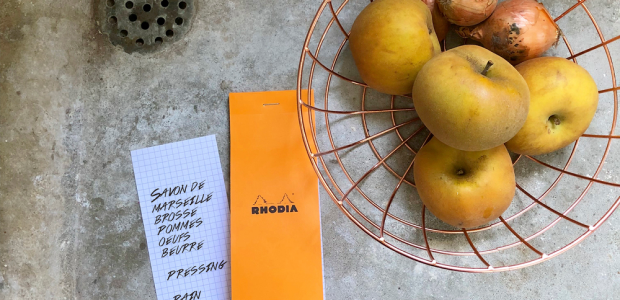 SAVON DE
MARSEILLE
BROSSE
POMMES
OEUFS
BEURRE
PRESSING
PAIN
RHODIA